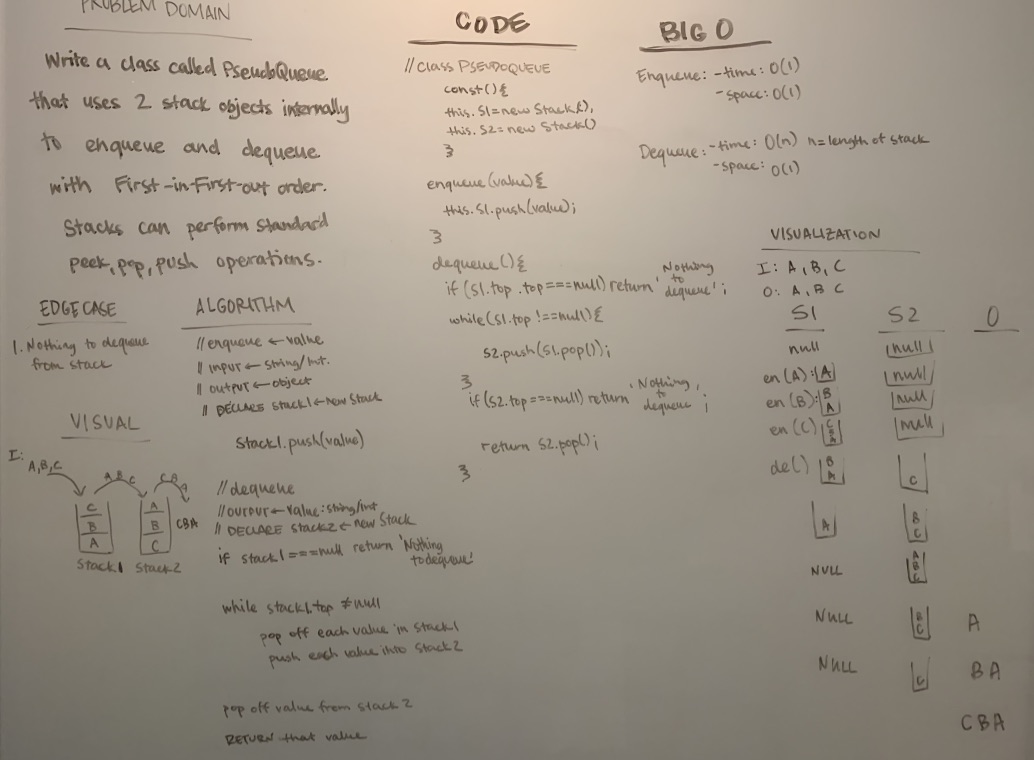 PROBLEM DOMAIN
Write a class called PseudoQueue
that uses 2 stack objects internally
to enqueue and dequeue
with First-in-First-out order.
Stacks can perform standard
peek, pop, push operations.
EDGE CASE
1. Nothing to dequeue
from stack
VISUAL
I:
A,B,C
A B C
C B A
C
B
A
Stack1
A
B
C
Stack2
CBA
ALGORITHM
// enqueue ← value
// input ← string/int.
// output ← object
// DECLARE stack1 ← new Stack
Stack1.push(value)
// dequeue
// output ← value: string/int
// DECLARE stack2 ← new Stack
if stack1 === null return 'Nothing
to dequeue'
while stack1.top ≠ null
pop off each value in stack1
push each value into stack2
pop off value from stack 2
RETURN that value
CODE
// Class PSEUDOQUEUE
const(){
this.S1 = new Stack(),
this.S2 = new Stack()
}
enqueue(value){
this.S1.push(value);
}
dequeue(){
if (S1.top.top === null) return 'Nothing to dequeue';
while(S1.top !== null){
S2.push(S1.pop());
}
if (S2.top === null) return 'Nothing to dequeue';
return S2.pop();
}
BIG O
Enqueue: - time: O(1)
- space: O(1)
Dequeue: - time: O(n) n = length of stack
- space: O(1)
VISUALIZATION
I: A, B, C
O: A, B C
S1 S2 O
null null
en(A): A null
en(B): B A null
en(C) C B A null
de() B A C
A B C
NULL A B C
NULL B C A
NULL C BA
CBA